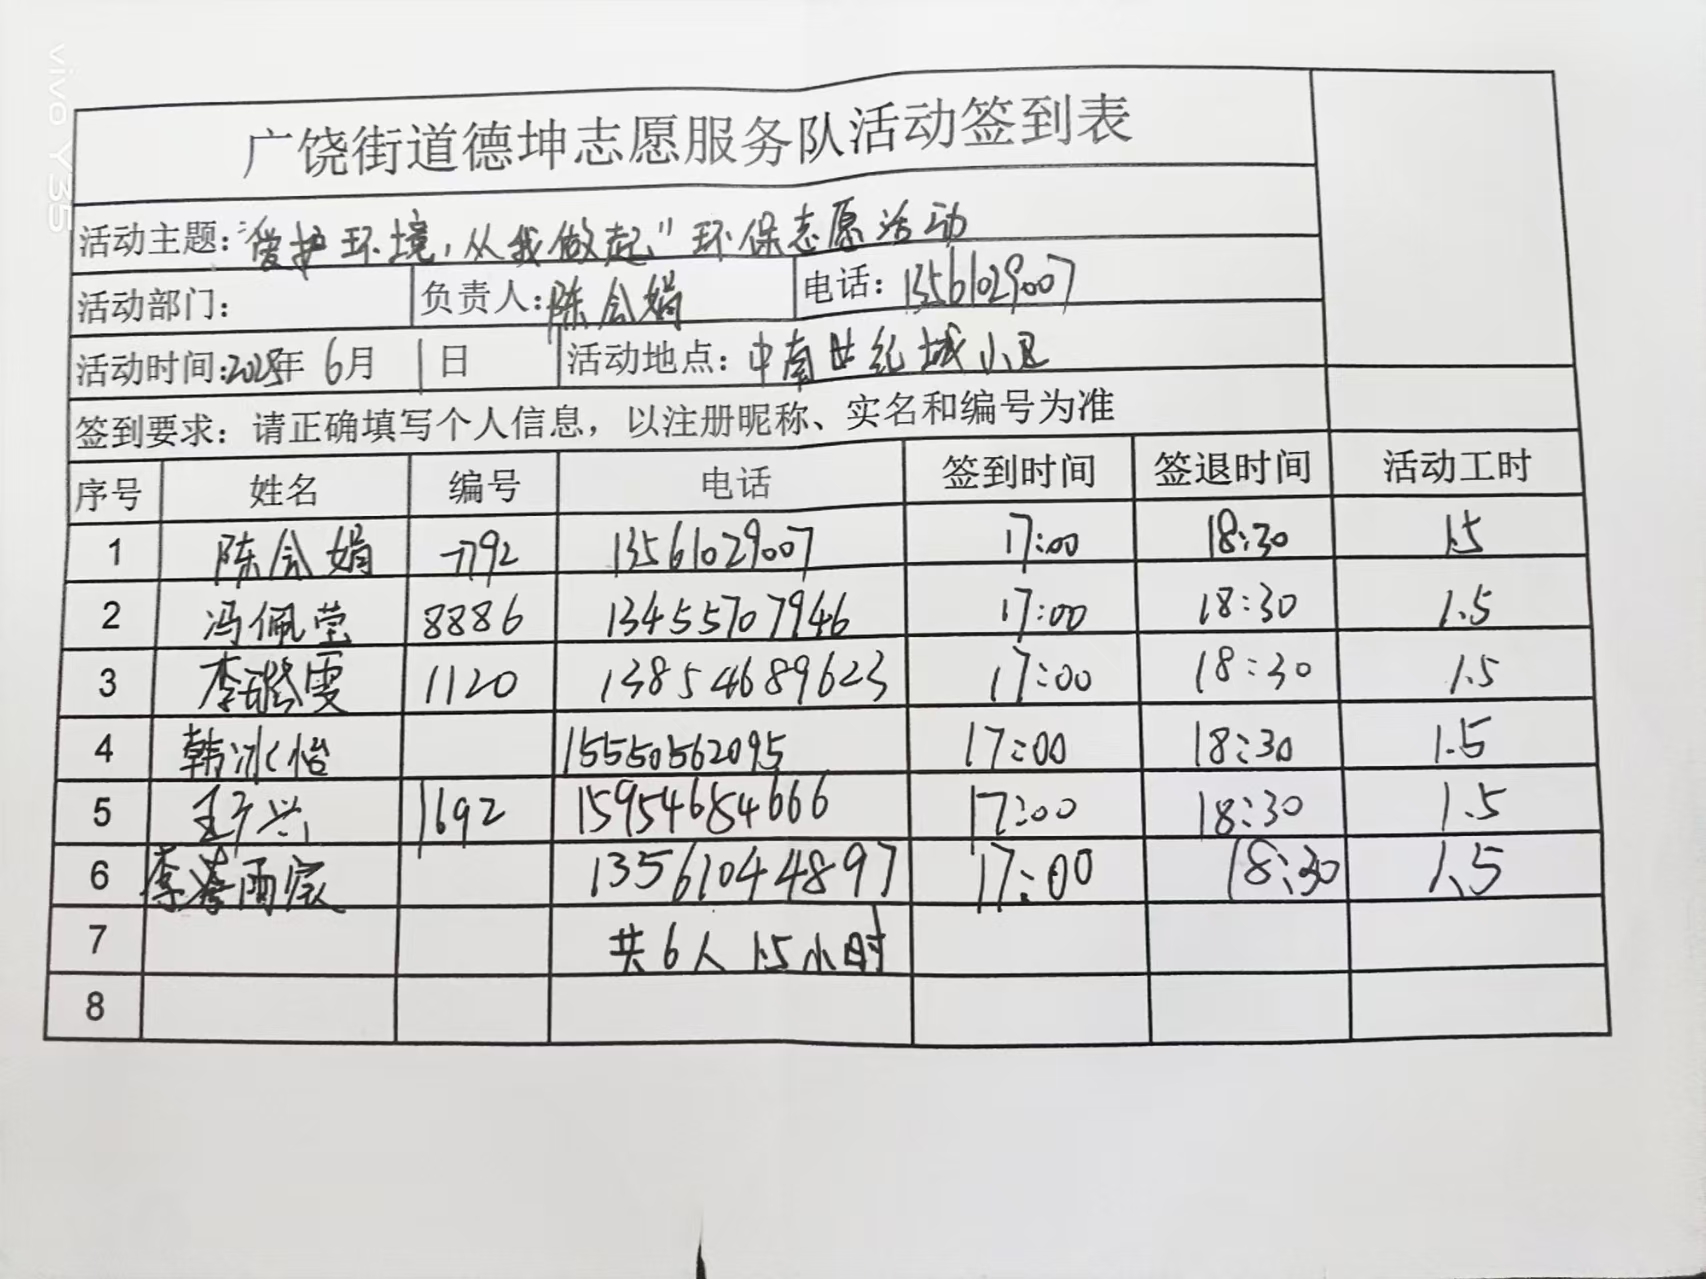 vivo Y35
广饶街道德坤志愿服务队活动签到表
活动主题:“爱护环境,从我做起”环保志愿活动
活动部门: 负责人:陈会娟 电话:13561029007
活动时间:2025年6月1日 活动地点:中南世纪城小区
签到要求:请正确填写个人信息,以注册昵称、实名和编号为准
序号 姓名 编号 电话 签到时间 签退时间 活动工时
1 陈会娟 7792 13561029007 17:00 18:30 1.5
2 冯佩莹 8886 13455707946 17:00 18:30 1.5
3 李雯 1120 13854689623 17:00 18:30 1.5
4 韩冰怡 15550562095 17:00 18:30 1.5
5 王兴 1692 15954684666 17:00 18:30 1.5
6 李雨宸 13561044897 17:00 18:30 1.5
7 共6人 1.5小时
8